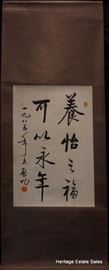 養怡之福
可以永年
一九八五年
启功
Heritage Estate Sales